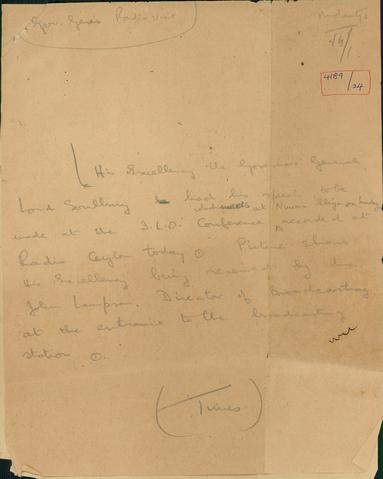 Gov. Gen's Radio visit
4189/24
His Excellency the Governor General
Lord Soulbury had his speech to be
made at the I.L.O. Conference recorded at
which meets at Nuwara Eliya on
Radio Ceylon today. Picture shows
His Excellency being received by Mr.
John Lampson, Director of Broadcasting
at the entrance to the broadcasting
station.
(Times)